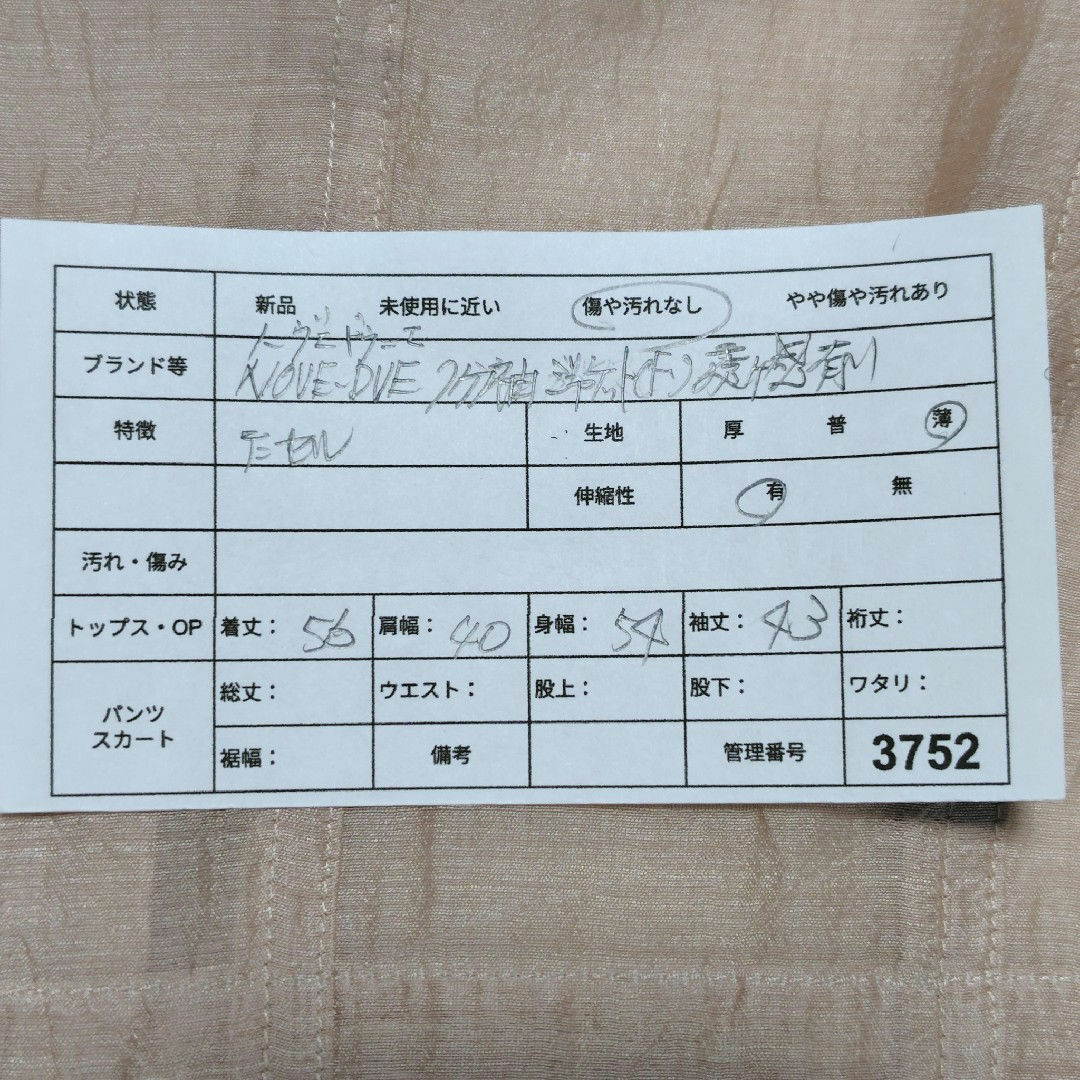 状態 新品 未使用に近い 傷や汚れなし やや傷や汚れあり
ノーヴェドゥーエ
ブランド等 NOVE-DVE 7分袖 透け感有り
特徴 生地 厚 普 薄
伸縮性 有 無
汚れ・傷み
トップス・OP 着丈: 56 肩幅: 40 身幅: 54 袖丈: 43 裄丈:
パンツ スカート 総丈: ウエスト: 股上: 股下: ワタリ:
裾幅: 備考 管理番号 3752